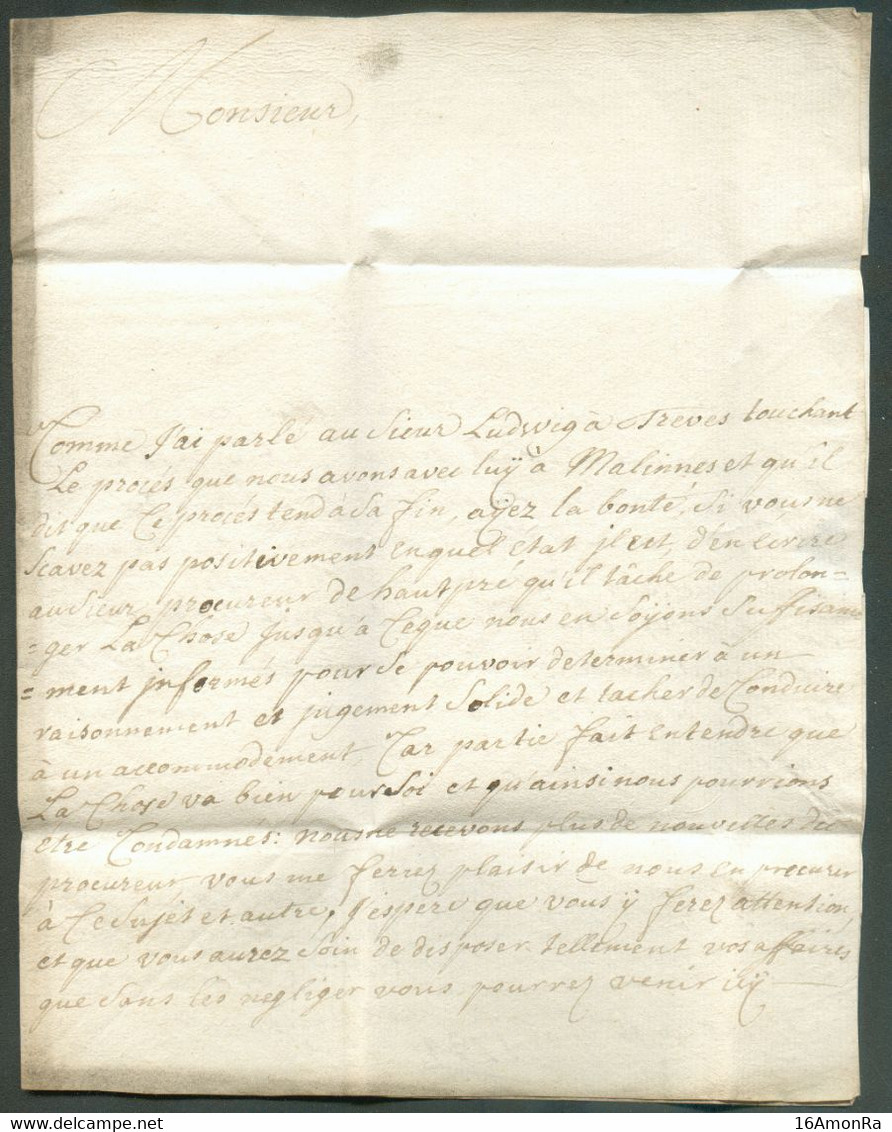 Monsieur,
Comme J'ai parlé au Sieur Ludwig à Treves touchant
Le procés que nous avons avec luÿ à Malinnes et qu'il
dit que Ce procés tend à Sa fin, aÿez la bonté, Si vous ne
scavez pas positivement en quel état jl est, d'en ecrire
au Sieur procureur de hautpré qu'il tâche de prolon=
=ger La Chose Jusqu'à Ceque nous en Soÿons Suffisam
=ment jnformés pour Se pouvoir determiner à un
raisonnement et jugement Solide et tacher de Conduire
à un accommodement, Car partie fait entendre que
La Chose va bien pour Soi et qu'ainsi nous pourrions
etre Condamnés: nous ne recevons plus de nouvelles du
procureur, vous me ferez plaisir de nous en procurer
à Ce Sujét et autre, J'espere que vous ÿ ferez attention,
et que vous aurez Soin de disposer tellement vos affaires
que Sans les negliger vous pourrez venir icÿ
16AmonRa